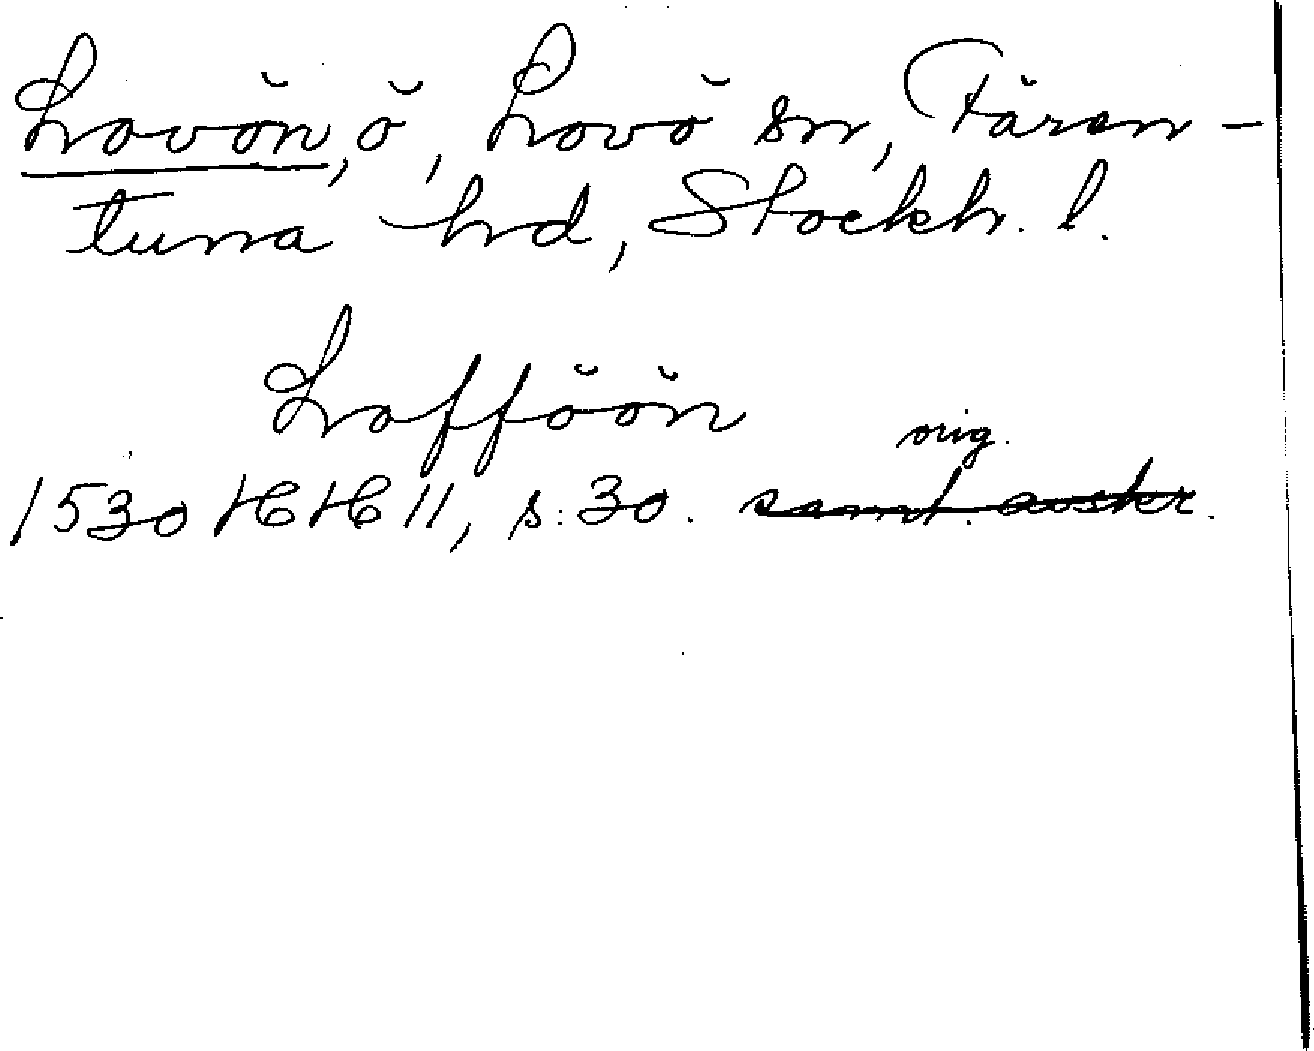 Lovön, ö, Lovö sn, Fären-
tuna hd, Stockh. l.
Lofföön
orig.
1530 HH 11, s. 30. samt. avskr.